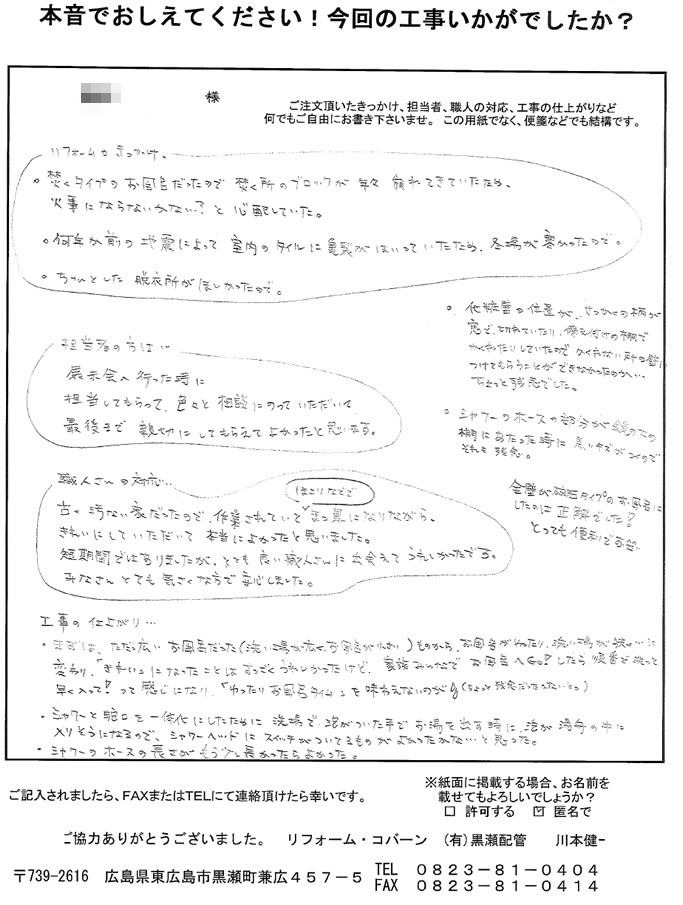 本音でおしえてください！今回の工事いかがでしたか？
様
ご注文頂いたきっかけ、担当者、職人の対応、工事の仕上がりなど
何でもご自由にお書き下さいませ。この用紙でなく、便箋などでも結構です。
リフォームのきっかけ、
。焚くタイプのお風呂だったので焚く所のブロックが年々崩れてきていたため、
火事にならないかな？と心配していた。
。何年か前の地震によって室内のタイルに亀裂がはいっていたため、冬場が寒かったので。
。ちゃんとした脱衣所がほしかったので。
担当者の方は…
展示会へ行った時に
担当してもらって、色々と相談にのっていただいて
最後まで親切にしてもらえてよかったと思います。
職人さんの対応…
ほこりなどで
古く汚ない家だったので、作業されていてまっ黒になりながら、
きれいにしていただいて本当によかったと思いました。
短期間ではありましたが、とても良い職人さんに出会えてうれしかったです。
みなさんとても気さくな方で安心しました。
。化粧壁の位置が、せっかくの柄が
窓で、切れていたり、備え付けの棚で
かくれたりしていたのでかくれない所の壁に
つけてもらうことができなかったのか…
ちょっと残念でした。
。シャワーのホースの部分が鏡の下の
棚にあたった時に黒いキズがつくので
それも残念。
全壁が磁石タイプのお風呂に
したのは正解でした！
とっても便利です
工事の仕上がり…
・まずは、ただっ広いお風呂だった(洗い場が広くお風呂が小さい)ものから、お風呂が広がり、洗い場が
変わり、「きれい」になったことはすっごくうれしかったけど、家族みんなでお風呂へGO!したら順番で洗って
早く入って！って感じになり、「ゆったりお風呂タイム」を味わえないのが(ちょっと残念だったないと。)
・シャワーと蛇口を一体化にしたために洗場で、泡がついた手でお湯を出す時に、泡が湯舟の中に
入りそうになるので、シャワーヘッドにスイッチがついてるものがよかったかな…と思った。
・シャワーのホースの長さがもう少し長かったらよかった。
ご記入されましたら、FAXまたはTELにて連絡頂けたら幸いです。
※紙面に掲載する場合、お名前を
載せてもよろしいでしょうか？
□ 許可する ☑ 匿名で
ご協力ありがとうございました。 リフォーム・コバーン (有)黒瀬配管 川本健一
〒739-2616 広島県東広島市黒瀬町兼広457-5
TEL 0823-81-0404
FAX 0823-81-0414